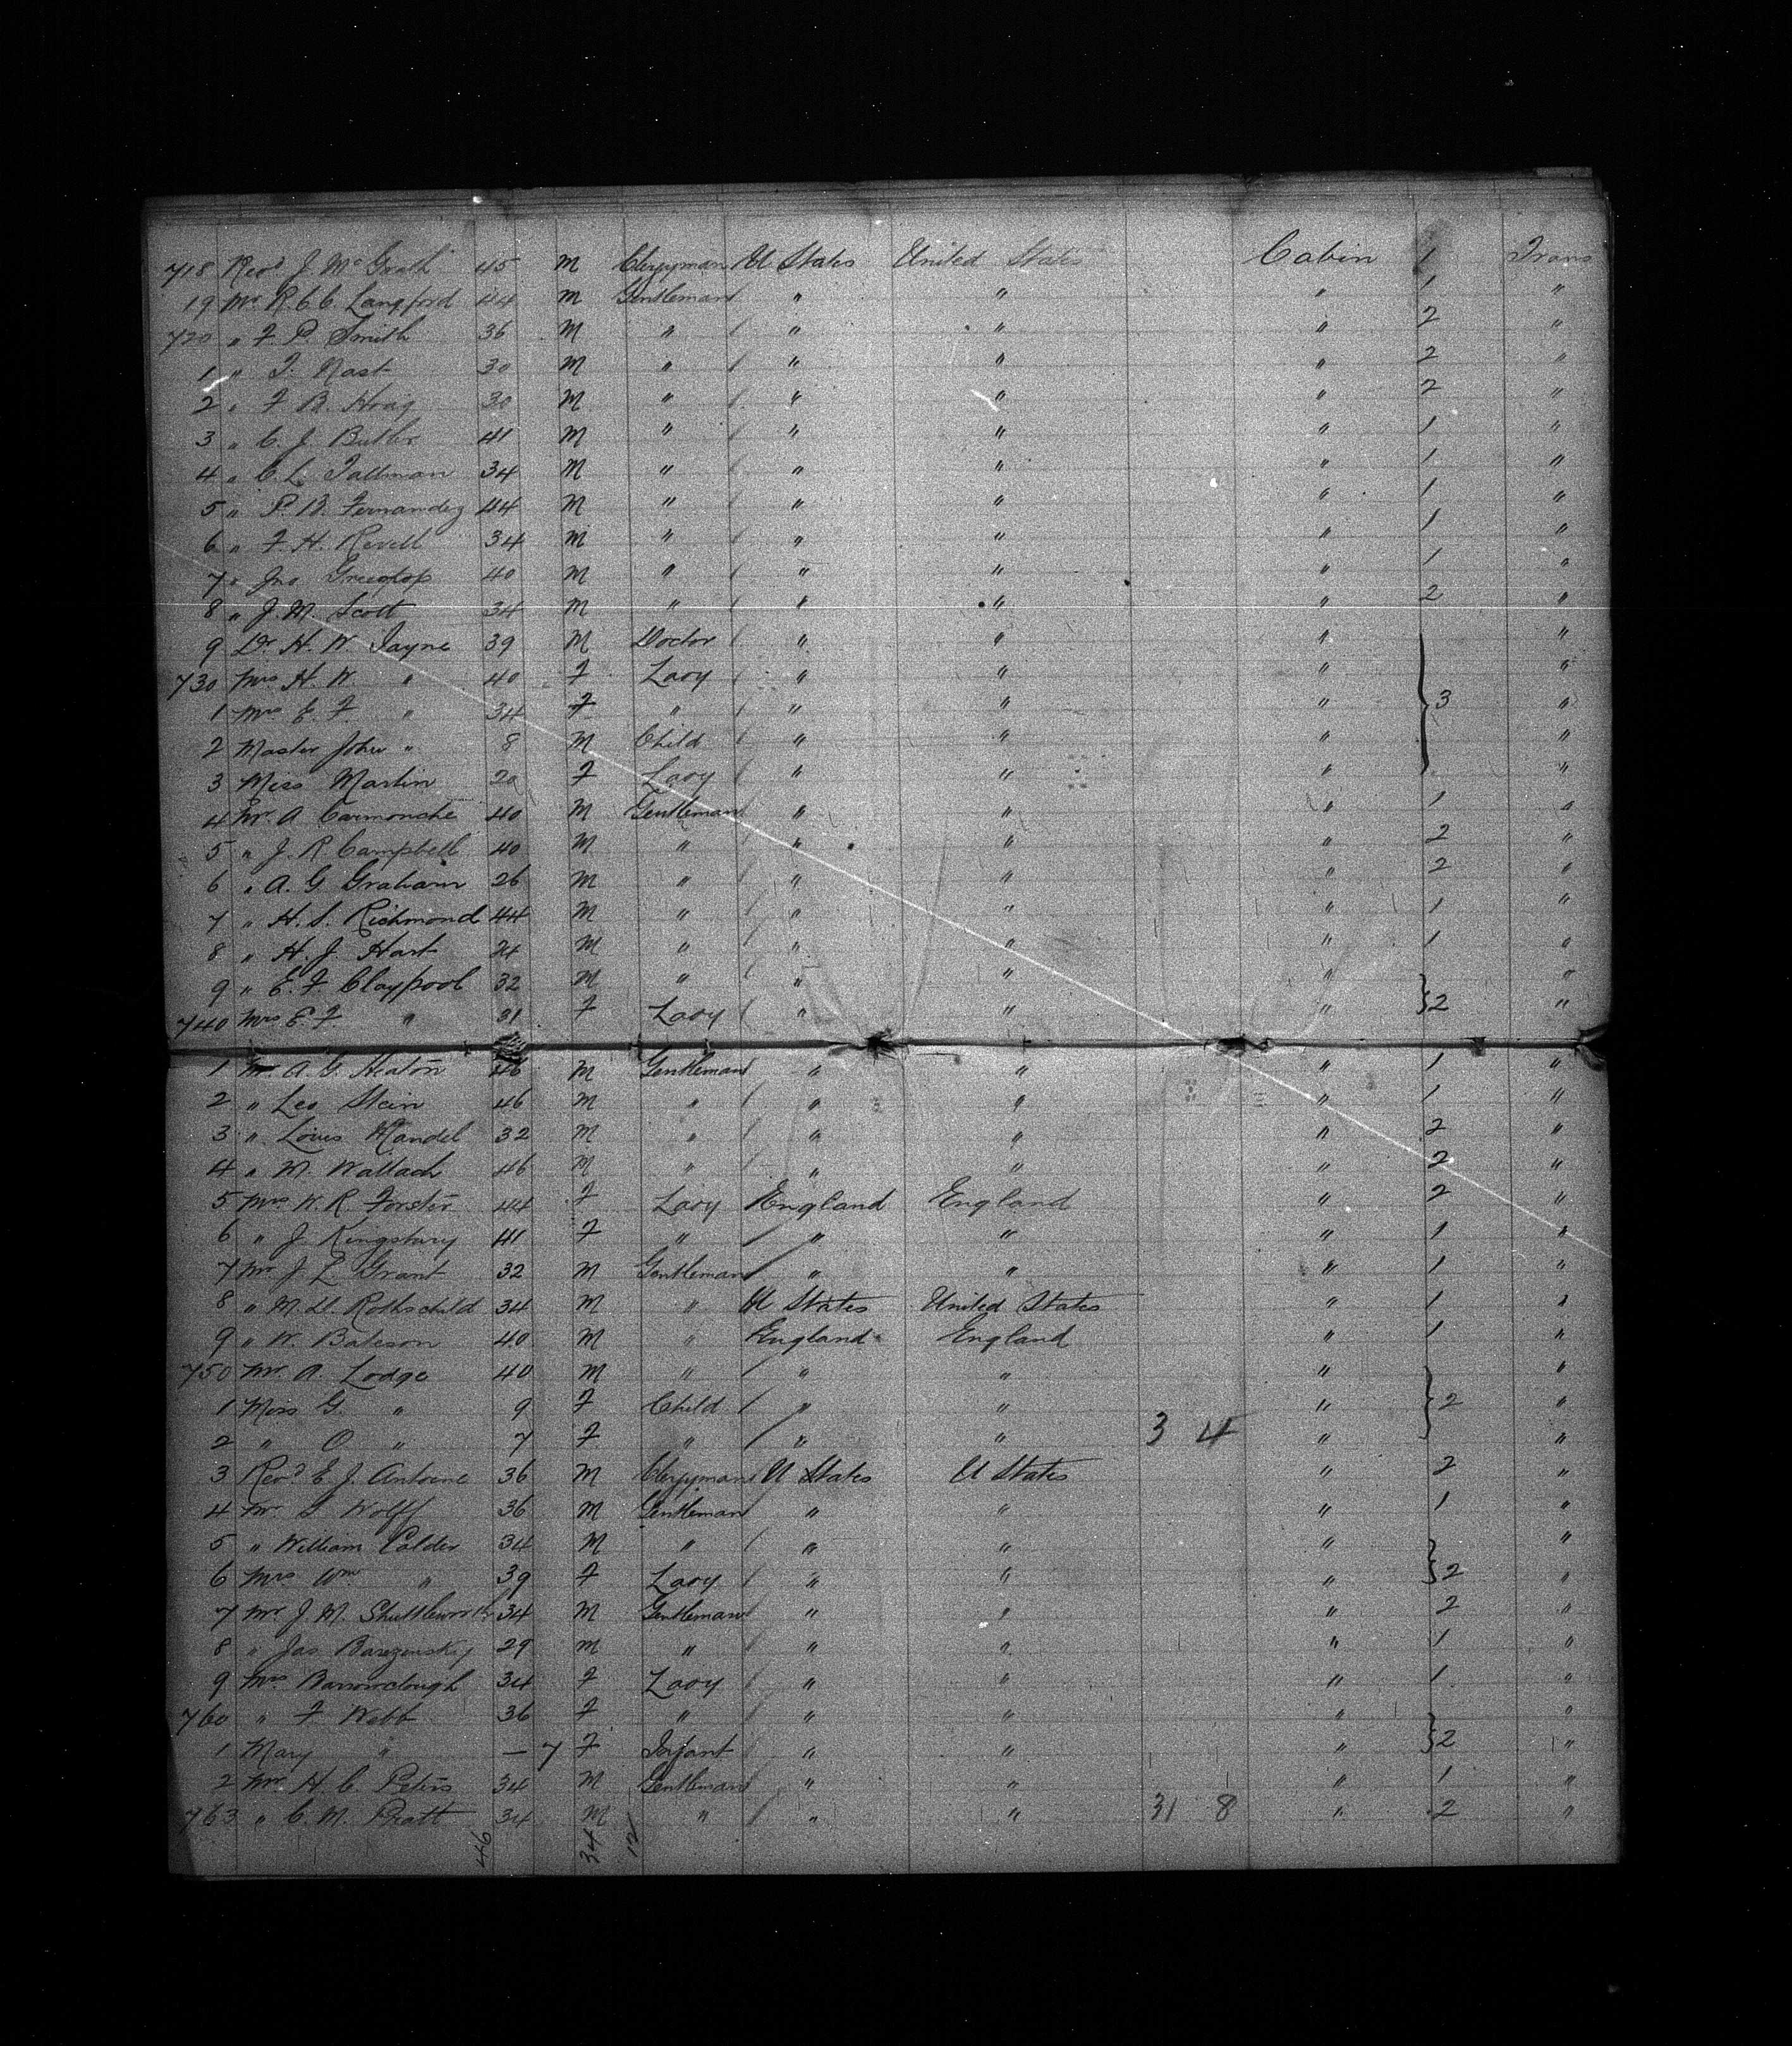 718 Revd J. McGrath 45 M Clergyman U States United States Cabin 1 Trans
19 Mr R.C.C. Langford 44 M Gentleman " " " 1 "
720 " F P Smith 36 M " " " " 2 "
1 " T. Nast 30 M " " " " 2 "
2 " F B. Hoag 30 M " " " " 2 "
3 " C. J. Butler 41 M " " " " 1 "
4 " C. L. Tallman 34 M " " " " 1 "
5 " P. B. Fernandez 44 M " " " " 1 "
6 " F. H. Revell 34 M " " " " 1 "
7 " Jno 40 M " " " " 1 "
8 " J. M. Scott 34 M " " " " 2 "
9 Dr H. W. Jayne 39 M Doctor " " " "
730 Mrs H. W " 40 F Lady " " " "
1 Mrs E. F. " 34 F " " " " 3 "
2 Master John " 8 M Child " " " "
3 Miss Martin 20 F Lady " " " "
4 Mr A Carmouche 40 M Gentleman " " " 1 "
5 " J. R Campbell 40 M " " " " 2 "
6 " A. G Graham 26 M " " " " 2 "
7 " H. S. Richmond 44 M " " " " 1 "
8 " H. J. Hart 24 M " " " " 1 "
9 " E. F. Claypool 32 M " " " " "
740 Mrs E. F. " 31 F Lady " " " 2 "
1 Mr A. C. Heaton 46 M Gentleman " " " 1 "
2 " Leo Stein 46 M " " " " 1 "
3 " Louis Mandel 32 M " " " " 2 "
4 " M. Wallach 46 M " " " " 2 "
5 Mrs W. R. Forster 44 F Lady England England " 2 "
6 " J. Kingsbury 41 F " " " " 1 "
7 Mr J. L Grant 32 M Gentleman " " " 1 "
8 " M. D. Rothschild 34 M " U States United States " 1 "
9 " W. Bateson 40 M " England England " 1 "
750 Mr A. Lodge 40 M " " " " "
1 Miss G. " 9 F Child " " " 2 "
2 " O " 7 F " " " 3 4 " "
3 Revd E. J. Antoine 36 M Clergyman U States U States " 2 "
4 Mr S Wolff 36 M Gentleman " " " 1 "
5 " William Calder 34 M " " " " "
6 Mrs Wm " 39 F Lady " " " 2 "
7 Mr J. M. Shuttleworth 34 M Gentleman " " " 2 "
8 " Jas 29 M " " " " 1 "
9 Mrs Barrowclough 34 F Lady " " " 1 "
760 " F Webb 36 F " " " " "
1 Mary " — 7 F Infant " " " 2 "
2 Mr H. C. Peters 34 M Gentleman " " " 1 "
763 " C. M. Pratt 34 M " " " 31 8 " 2 "
46 34 12